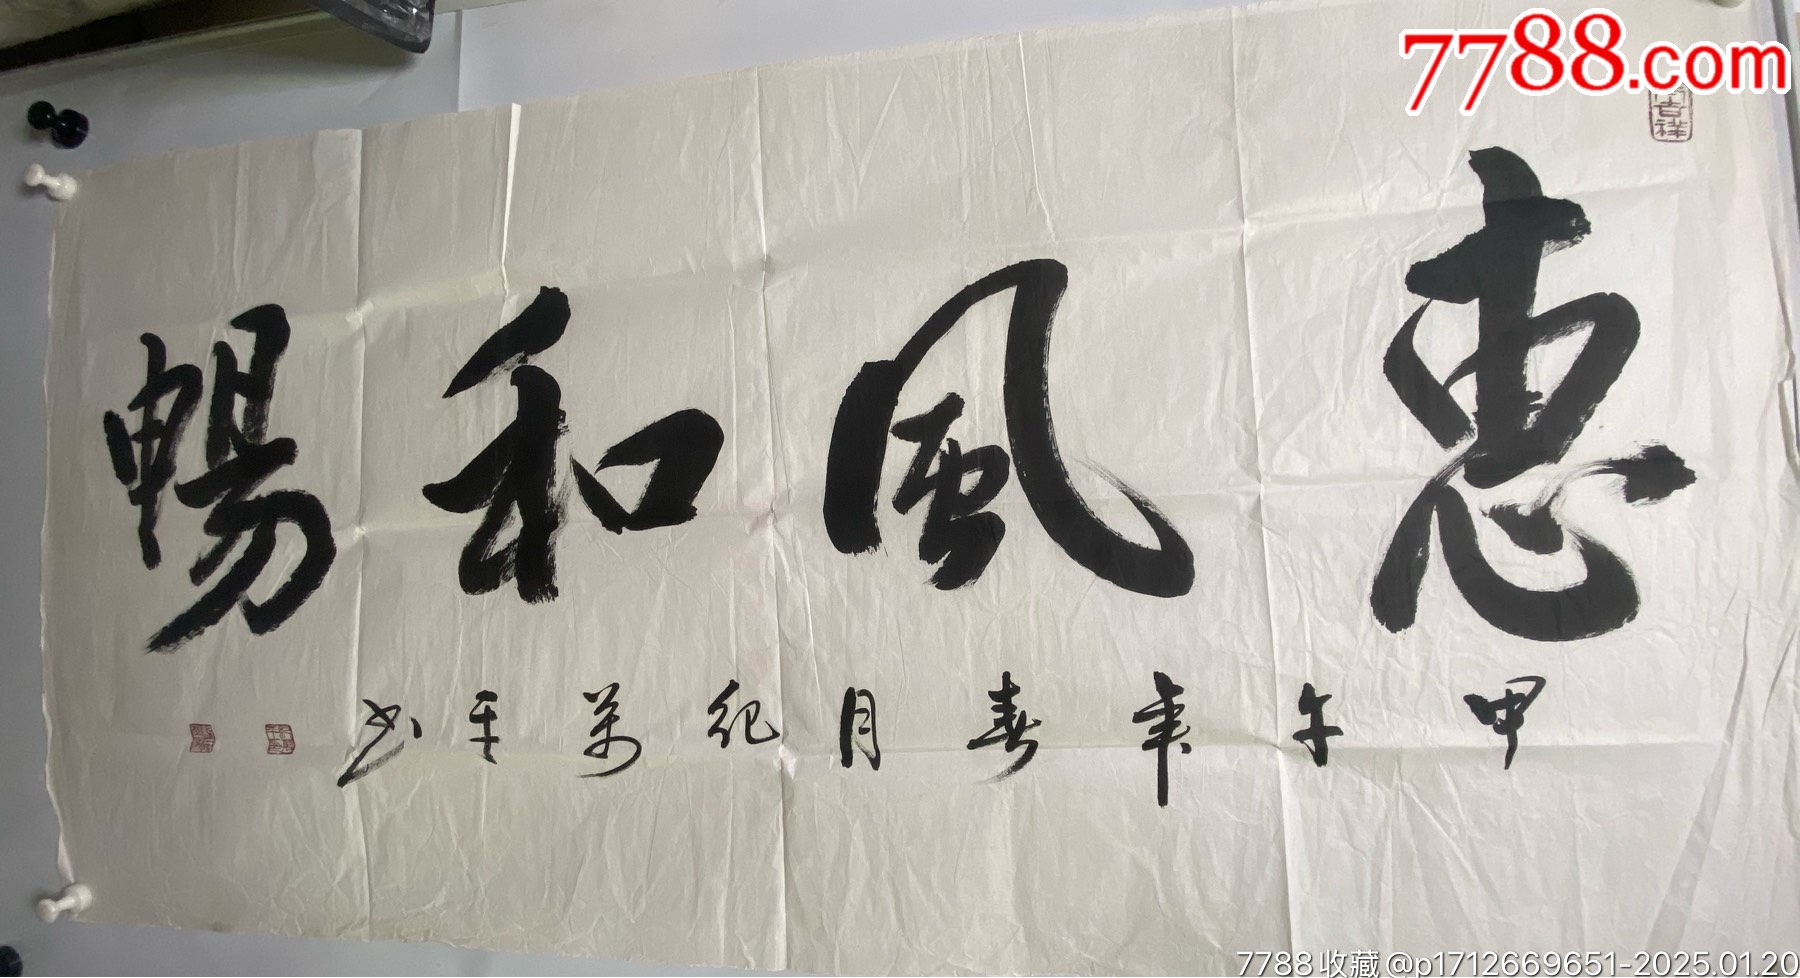 7788.com
吉祥
惠風和暢
甲午年春月紀萬平书
7788收藏@p1712669651-2025.01.20